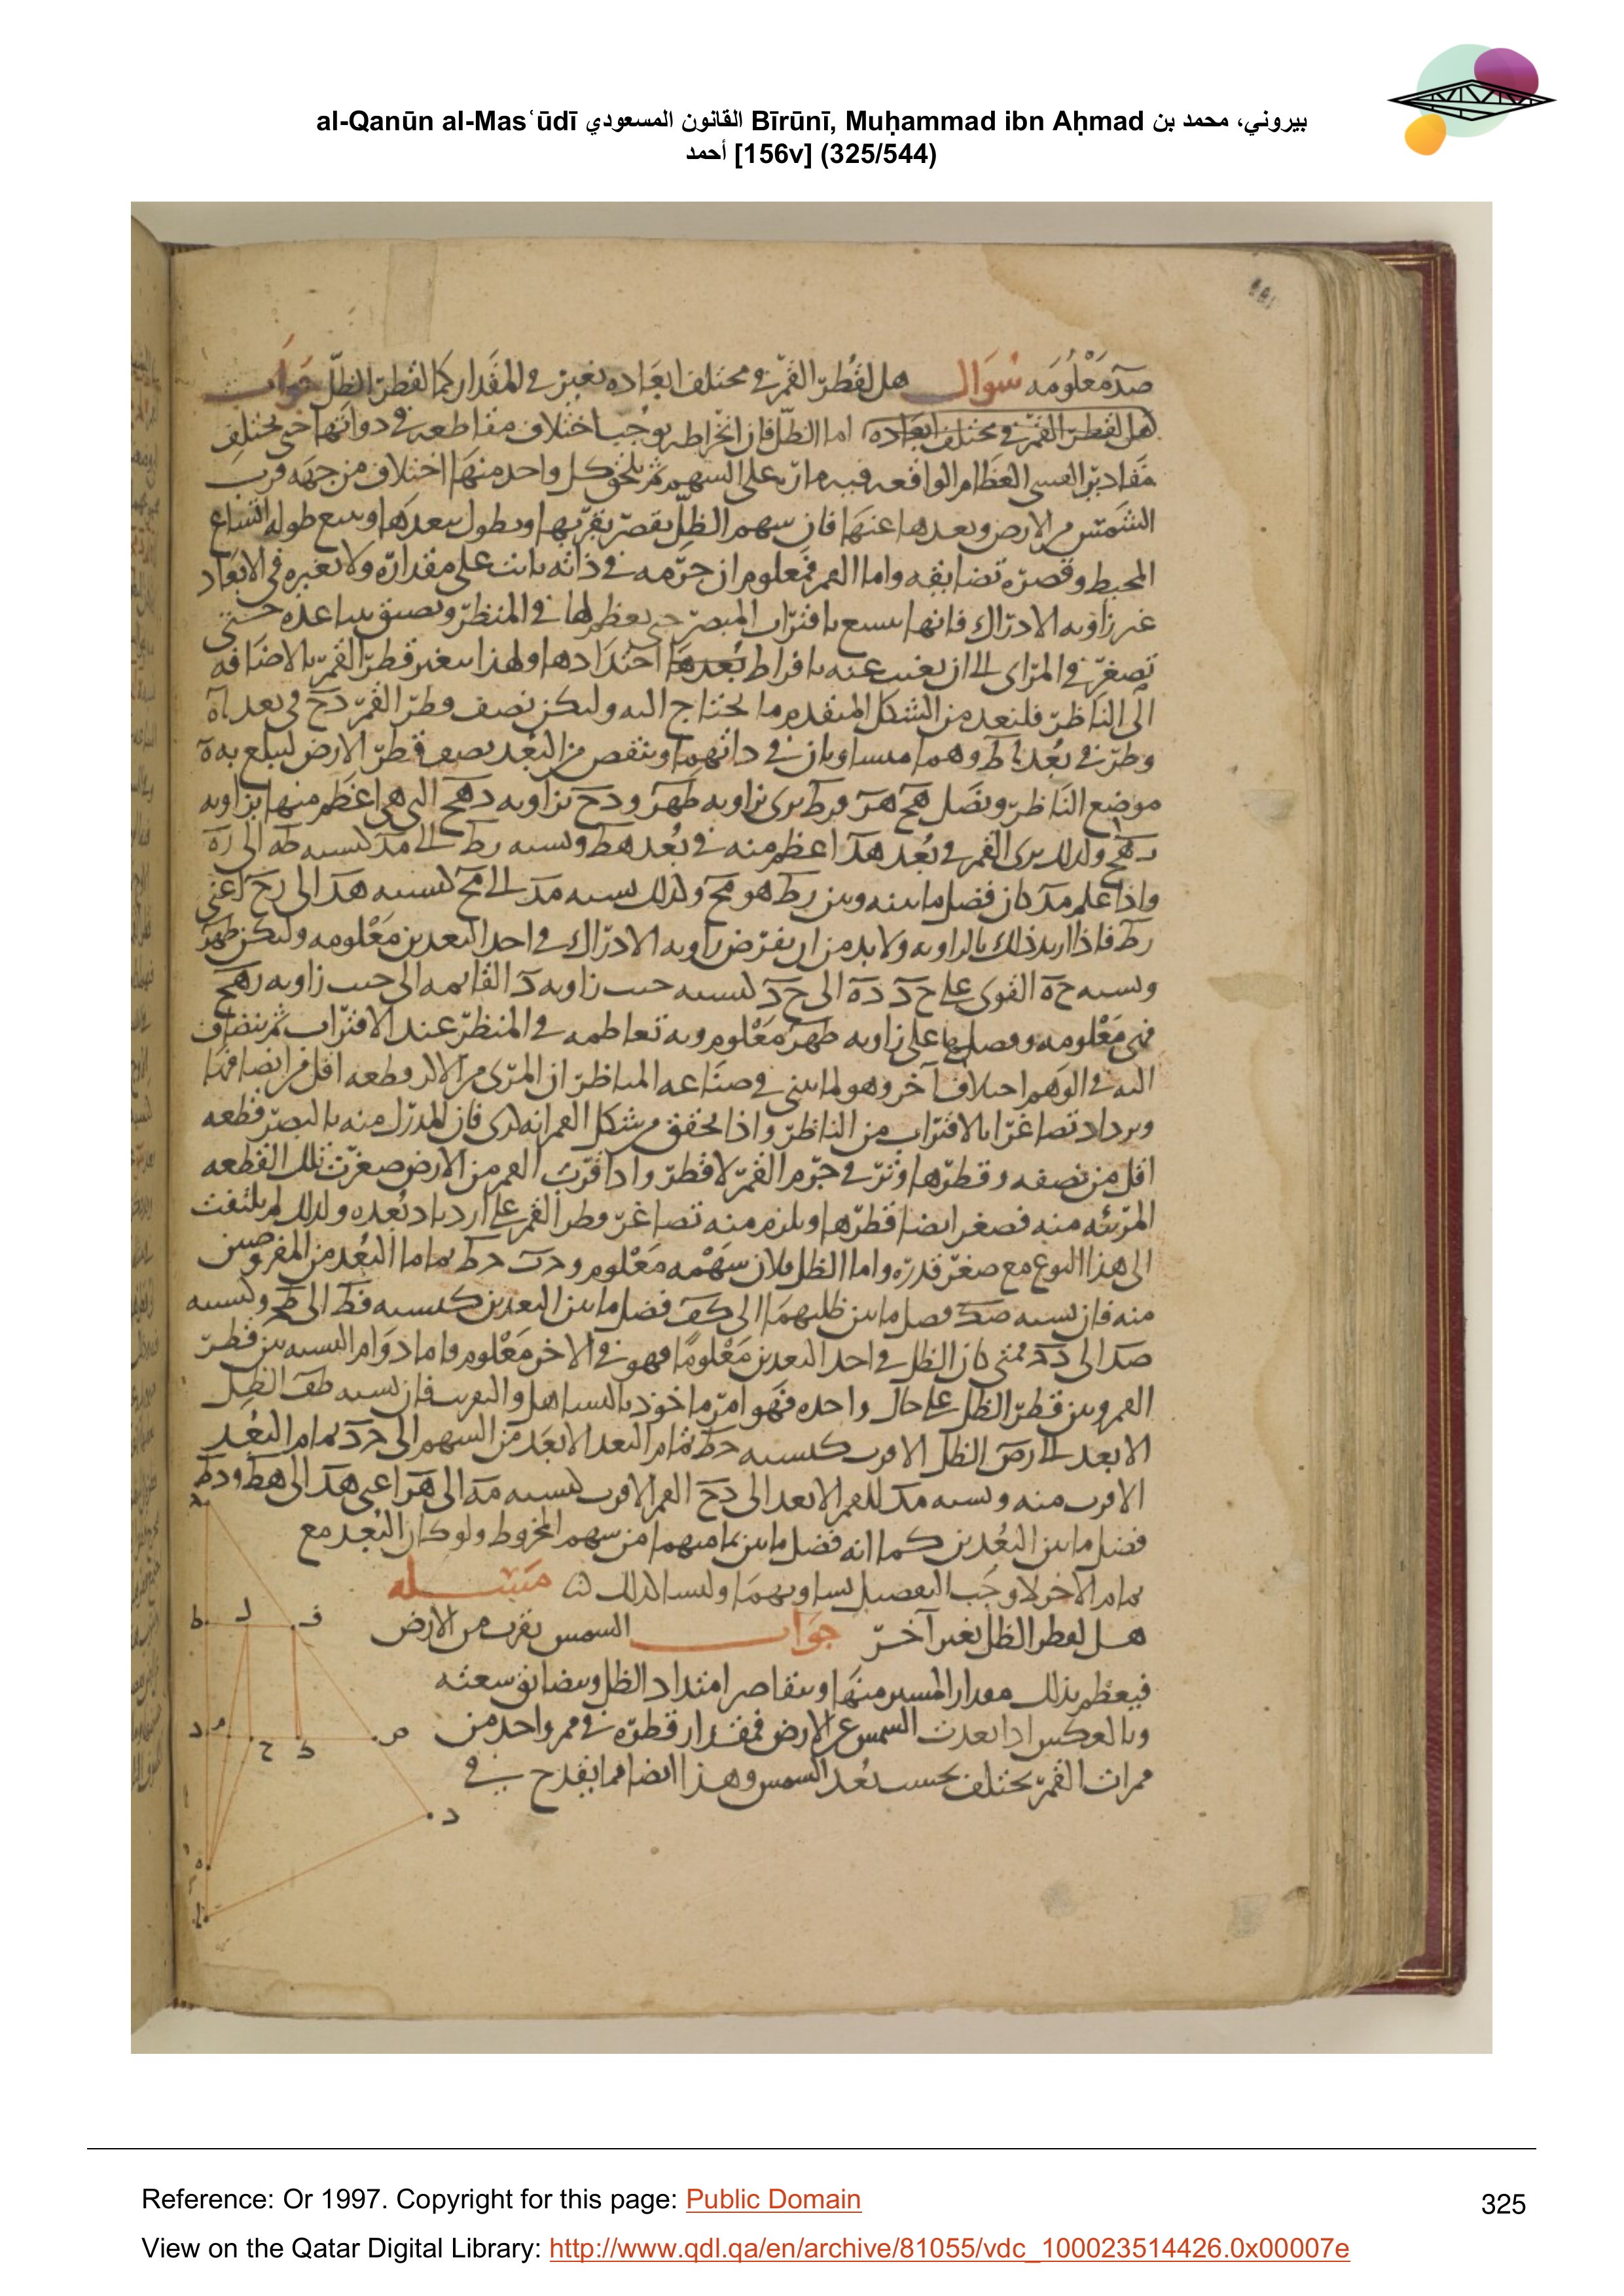 al-Qanūn al-Masʿūdī القانون المسعودي Bīrūnī, Muḥammad ibn Aḥmad بيروني، محمد بن
أحمد [156v] (325/544)
صد معلومه سوال هل لقطر القمر في مختلف ابعاده تغير في المقدار كما لقطر الظل جواب
هل لقطر القمر في مختلف ابعاده اما الظل فان انخراطه يوجب اختلاف مقاطعه في ذواتها حتى يختلف
مقادير القسى العظام الواقعه فيه مارة على السهم ثم يلحق كل واحد منها اختلاف من جهه قرب
الشمس من الارض وبعدها عنها فان سهم الظل يقصر بقربها ويطول ببعدها ويتبع طوله اتساع
المحيط وقصره تضايقه واما القمر فمعلوم ان جرمه في ذاته ثابت على مقداره ولا تغيره في الابعاد
غير زاويه الادراك فانها تتسع باقتراب المبصر حتى يعظم لها في المنظر وتضيق بتباعده حتى
تصغر في المراى الى ان يغيب عنه بافراط بعدها احتدادها ولهذا يتغير قطر القمر بالاضافه
الى الناظر فلنعد من الشكل المتقدم ما يحتاج اليه وليكن نصف قطر القمر دح في بعد اه
وطر في بعد اط وهما متساويان في ذاتهما وينقص من البعد نصف قطر الارض ليبلغ به ه
موضع الناظر ونصل هح هر فرط يرى بزاويه طهر ودح بزاويه دهح التي هي اعظم منها بزاويه
رهح ولذلك يرى القمر في بعد هد اعظم منه في بعد هط ونسبه رط الى مد كنسبه طه الى ده
واذا علم مد كان فضل ما بينه وبين رط هو مح ولذلك نسبه مد الى مح كنسبه هد الى رح اعني
رط فاذا اريد ذلك بالزاويه ولا بد من ان يفرض زاويه الادراك في احد البعدين معلومه وليكن طهر
ونسبه حه القوى على حد ده الى حد كنسبه جيب زاويه د القائمه الى جيب زاويه رهح
فهي معلومه وفضلها على زاويه طهر معلوم وبه تعاظمه في المنظر عند الاقتراب ثم ينضاف
اليه في الوهم اختلاف آخر وهو لما تبين في صناعه المناظر ان المرئ من الاكر قطعه اقل من انصافها
ويزداد تصاغرا بالاقتراب من الناظر واذا تحقق من شكل القمر انه كرى فان المدرك منه بالبصر قطعه
اقل من نصفه وقطرها وتر في جرم القمر لا قطر واذا قرب القمر من الارض صغرت تلك القطعه
المرئيه منه فصغر ايضا قطرها ويلزم منه تصاغر قطر القمر على ازدياد بعده ولذلك لم يلتفت
الى هذا النوع مع صغر قدره واما الظل فلان سهمه معلوم وحد حط تماما البعد من المفروضين
منه فان نسبه صك فضل ما بين ظليهما الى كف فضل ما بين البعدين كنسبه فط الى طح وكنسبه
صد الى دح فمتى كان الظل في احد البعدين معلوما فهو في الاخر معلوم واما دوام النسبه بين قطر
القمر وبين قطر الظل على حال واحده فهو امر ماخوذ بالتساهل والتقريب فان نسبه طف الظل
الابعد الى دص الظل الاقرب كنسبه حط تمام البعد الابعد من السهم الى حد تمام البعد
الاقرب منه ونسبه مد للقمر الابعد الى دح القمر الاقرب كنسبه مه الى هر اعني هد الى هط ودط
فضل ما بين البعدين كما انه فضل ما بين تماميهما من سهم المخروط ولو كان البعد مع
تمام الاخر لاوجب التفصيل تساويهما وليسا كذلك مسله
هل لقطر الظل تغير آخر جواب الشمس تقرب من الارض
فيعظم بذلك مقدار المستنير منها ويتقاصر امتداد الظل ويتضايق سعته
وبالعكس اذا بعدت الشمس عن الارض فمقدار قطره في ممر واحد من
ممرات القمر يختلف بحسب بعد الشمس وهذا ايضا مما يقدح في
Reference: Or 1997. Copyright for this page: Public Domain
325
View on the Qatar Digital Library: http://www.qdl.qa/en/archive/81055/vdc_100023514426.0x00007e